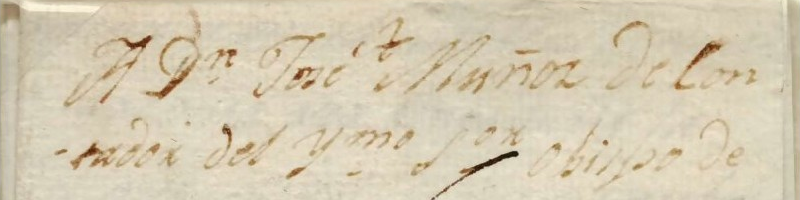 A Dn Josè Muñoz de Con
-tador del Ymo Sor obispo de